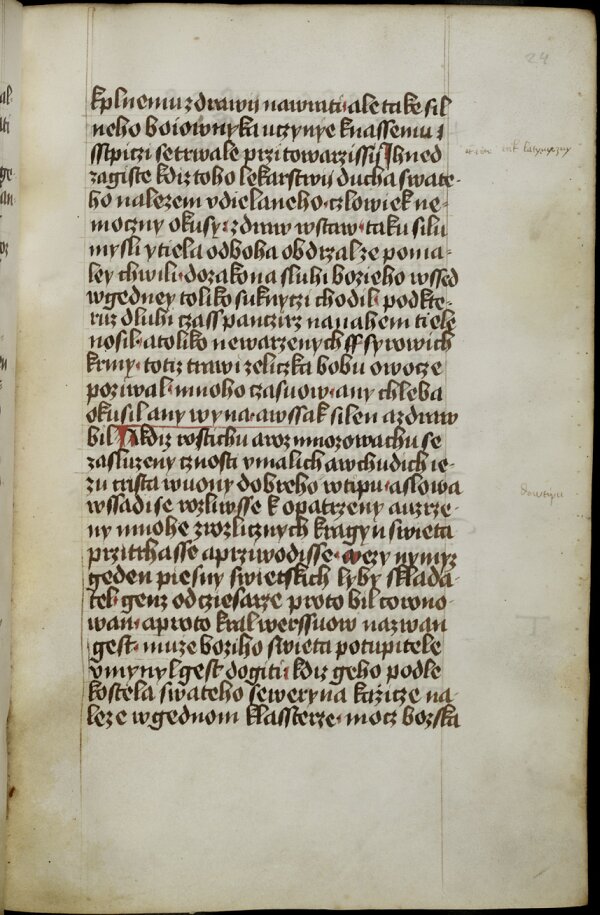 24
kplnemu zdrawij nawrati· ale take sil
neho boiownyka uczynye knassemu z
sstpiczi setrwale przi towarzissij Ihned
zagiste kdiz toho lekarstwij ducha swate-
ho nalezem vdielaneho· czlowiek ne-
moczny okusy: zdraw wstaw· taku silu
mysli y tiela odboha obdrzal ze poma-
ley chwili· dozakona sluhi bozieho wssed
wgedney toliko suknyczi chodil· podkte-
ruz dluhi czass panczirz nanahem tiele
nosil· atoliko newarzenych ssyrowich
krmy· totiz trawi zeliczka bobu owocze
poziwal· mnoho czasuow· any chleba
okusil any wyna· awssak silen azdraw
bil Akdiz rostichu arozmnozowachu se
zasluzeny cznosti vmalich awchudich ie-
zu crista wuony dobreho wtipu· aslowa
wssadise rozliwsse kopatrzeny auzrze-
ny mnohe zrozlicznych kragyu swieta
przitrhasse aprziwodisse· mezy nymyz
geden piesny swietskich lyby sklada-
tel· genz odcziesarze proto bil corono-
wan· aproto kral werssuow nazwan
gest· muze boziho swieta potupitele
vmynyl gest dogiti· kdiz geho podle
kostela swateho seweryna kazicze na-
leze wgednom klassterze· mocz bozska